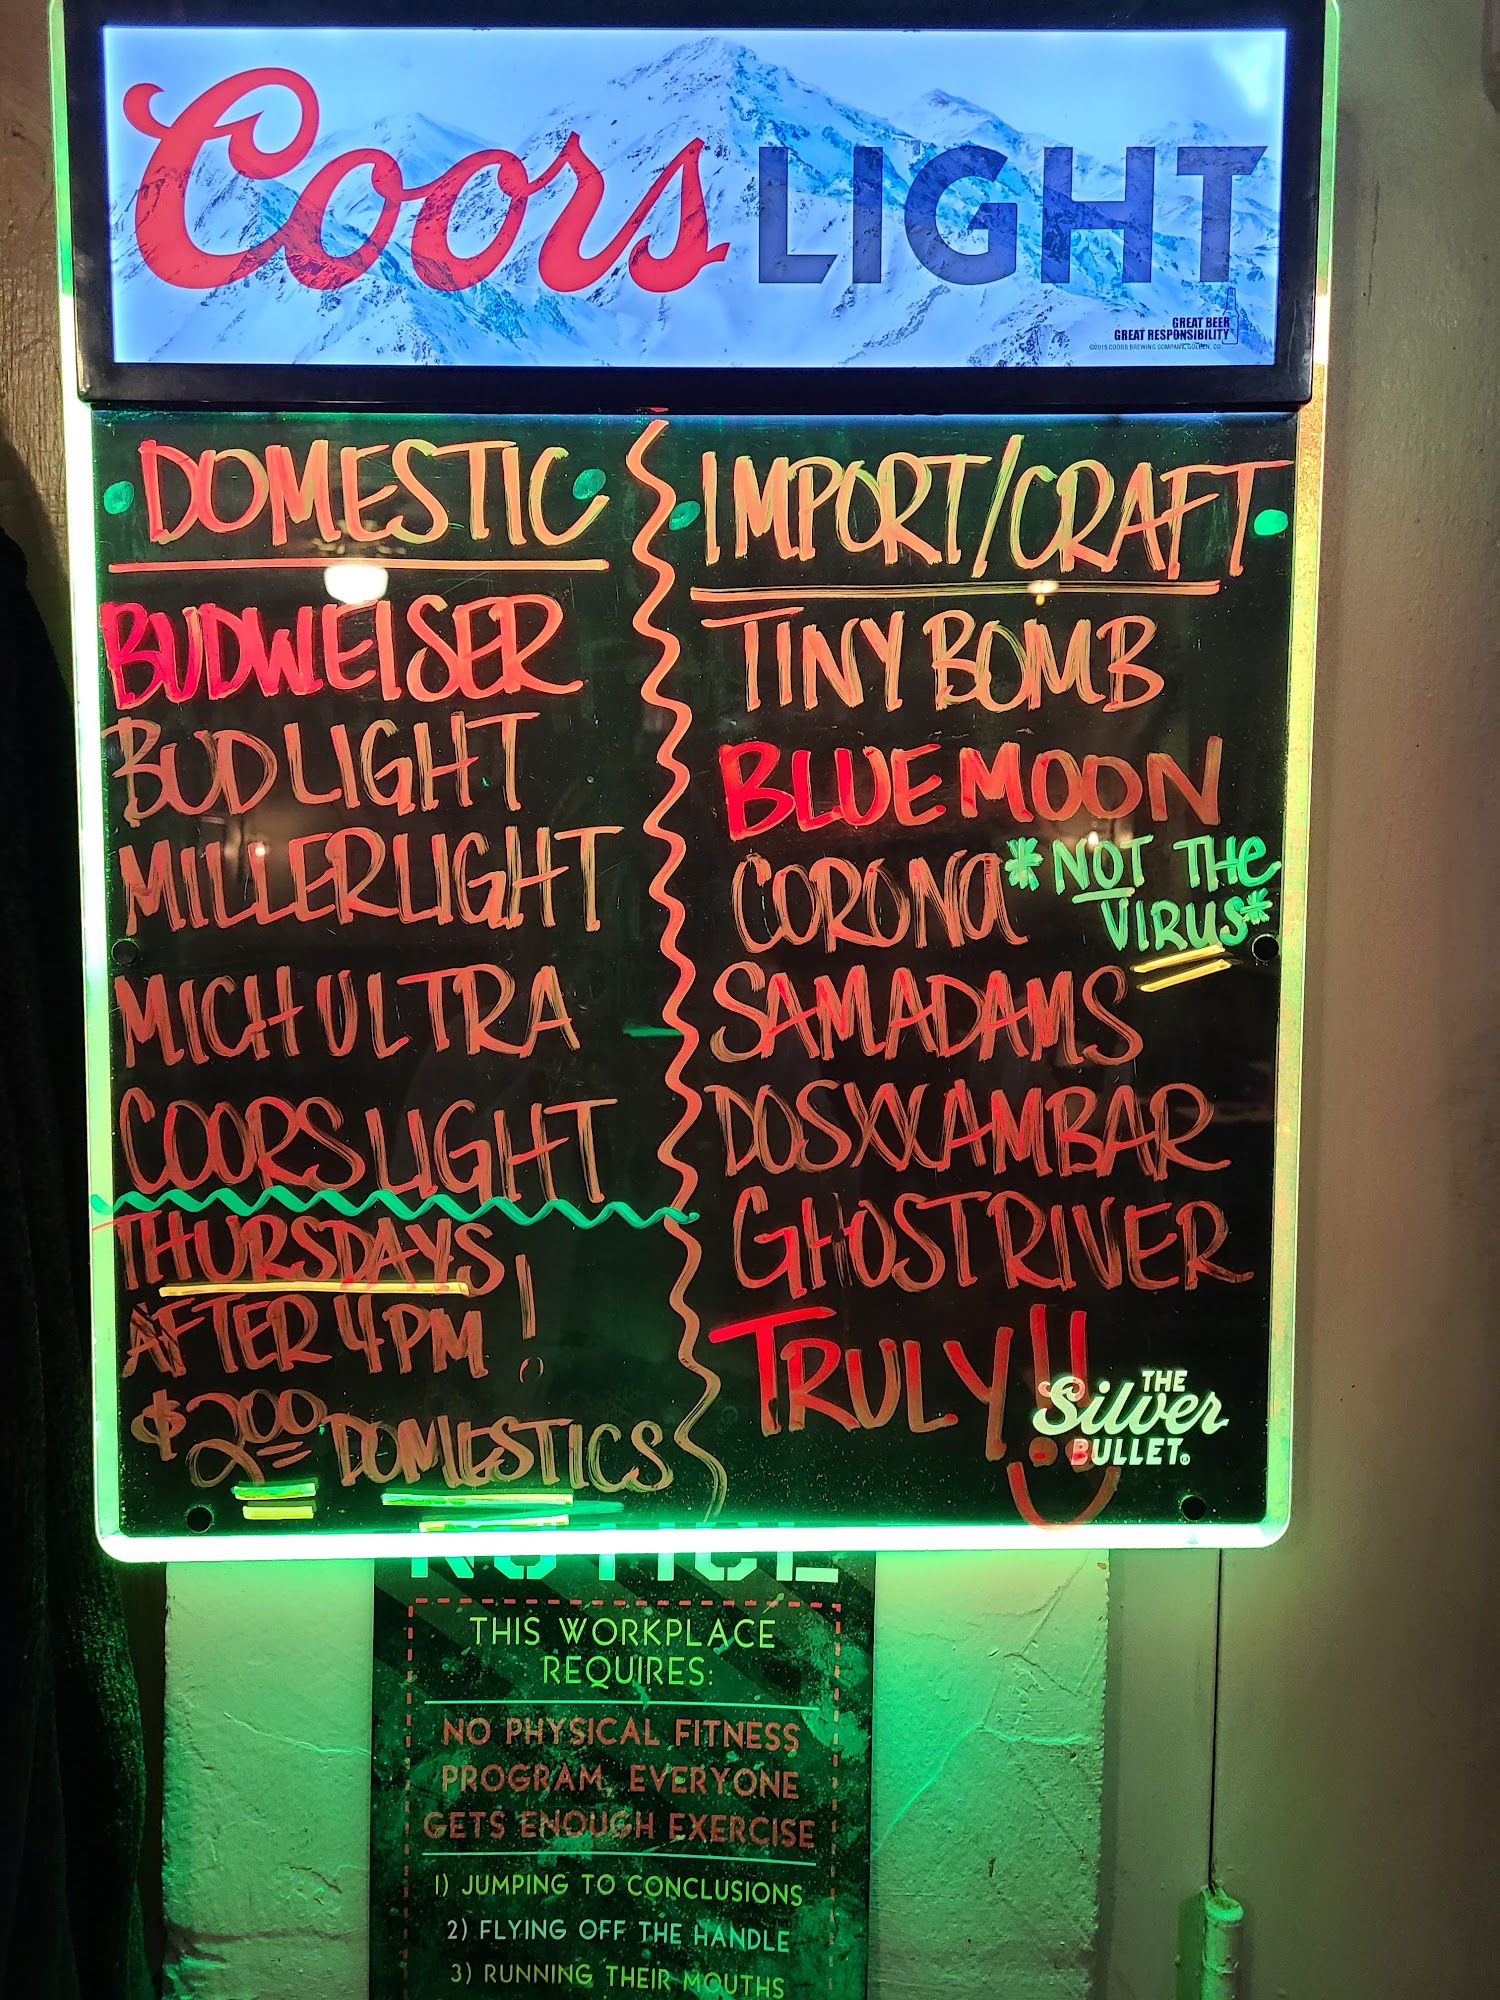 Coors LIGHT
GREAT BEER
GREAT RESPONSIBILITY
©2015 COORS BREWING COMPANY, GOLDEN, CO
DOMESTIC
BUDWEISER
BUD LIGHT
MILLER LIGHT
MICH ULTRA
COORS LIGHT
THURSDAYS
AFTER 4PM!
$2.00 DOMESTICS
IMPORT/CRAFT
TINY BOMB
BLUE MOON
CORONA *NOT THE
VIRUS*
SAM ADAMS
DOS XX AMBAR
GHOST RIVER
TRULY!!
THE
Silver
BULLET®
NOTICE
THIS WORKPLACE
REQUIRES:
NO PHYSICAL FITNESS
PROGRAM, EVERYONE
GETS ENOUGH EXERCISE
1) JUMPING TO CONCLUSIONS
2) FLYING OFF THE HANDLE
3) RUNNING THEIR MOUTHS